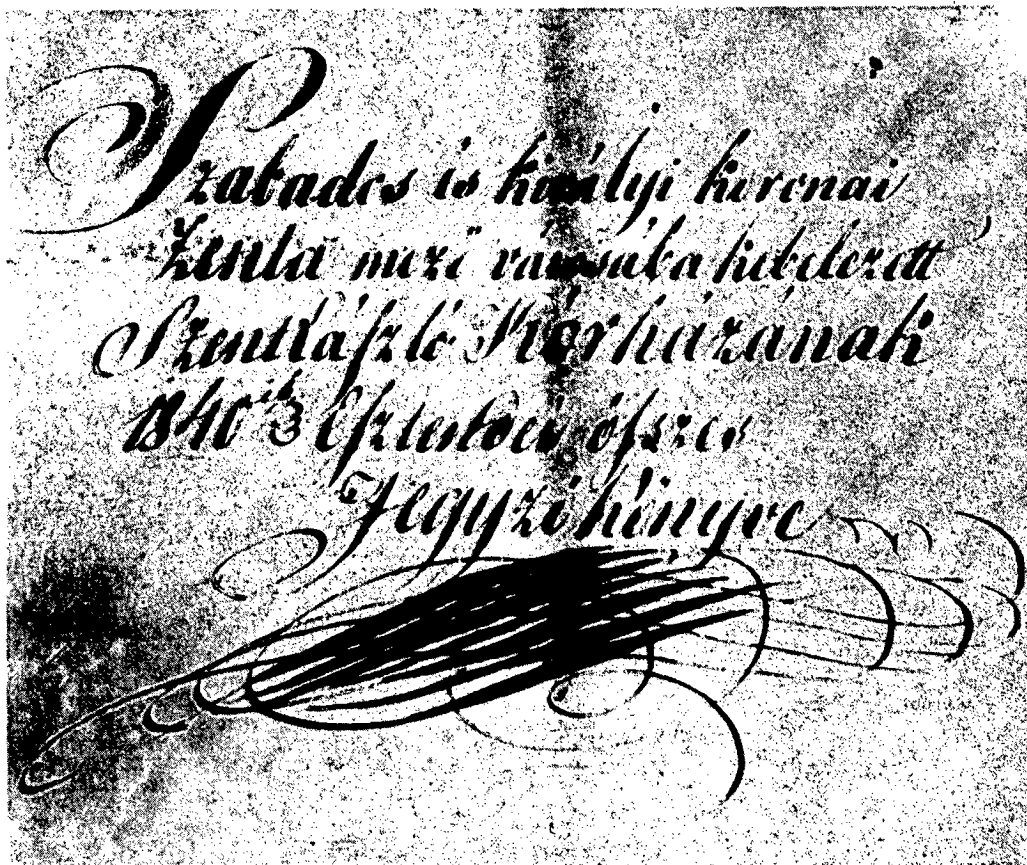 Szabados és királyi koronai
Zenta mező városába kebelezett
Szent László Kórházának
1840ik Esztendei öſszes
Jegyzőkönyve